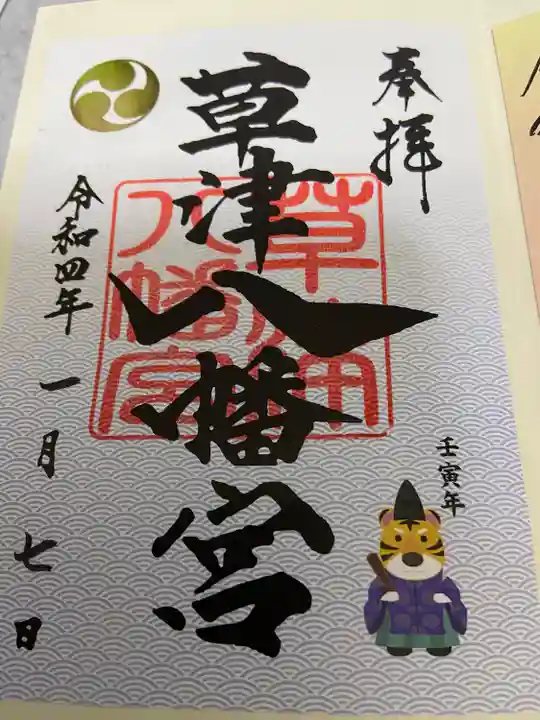 奉拝
草津八幡宮
草津
八幡宮
令和四年
一月
七日
壬寅年